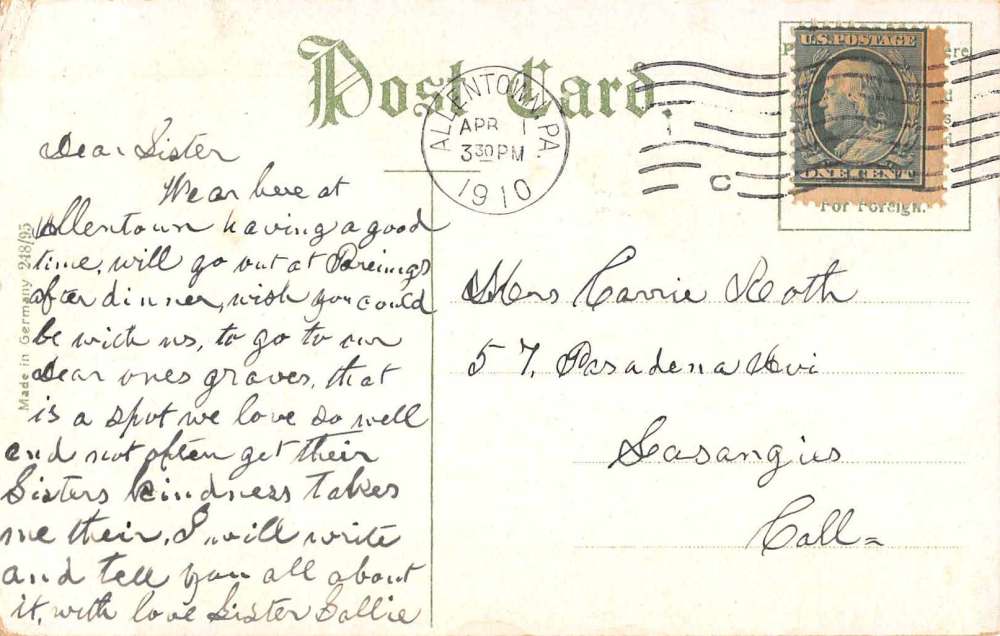 Post Card.
ALLENTOWN, PA.
APR 1
3 30 PM
1910
C
U.S. POSTAGE
ONE CENT
For Foreign.
Made in Germany 248/95
Dear Sister
We ar here at
Allentown having a good
time, will go out at
after dinner, wish you could
be with us, to go to our
dear ones graves, that
is a spot we love so well
and not often get their
Sisters kindness takes
me their, I will write
and tell you all about
it, with love Sister Sallie
Mrs Carrie Roth
57, Pasadena Avi
Lasangies
Call=